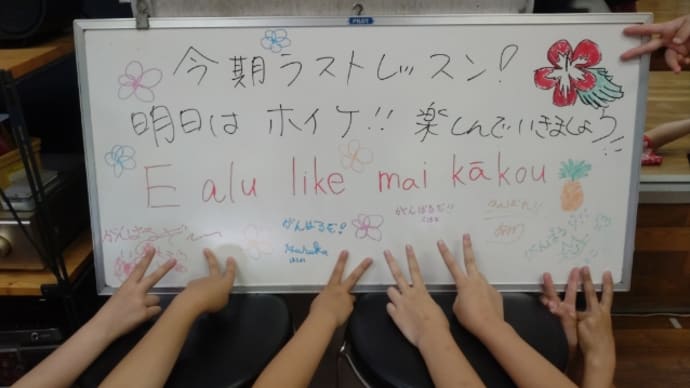 PILOT
今期ラストレッスン!
明日は ホイケ!! 楽しんでいきましょう!!
E alu like mai kākou
がんばるぞ〜
がんばるぞ!
Haruka
がんばるぞ!!
がんばる